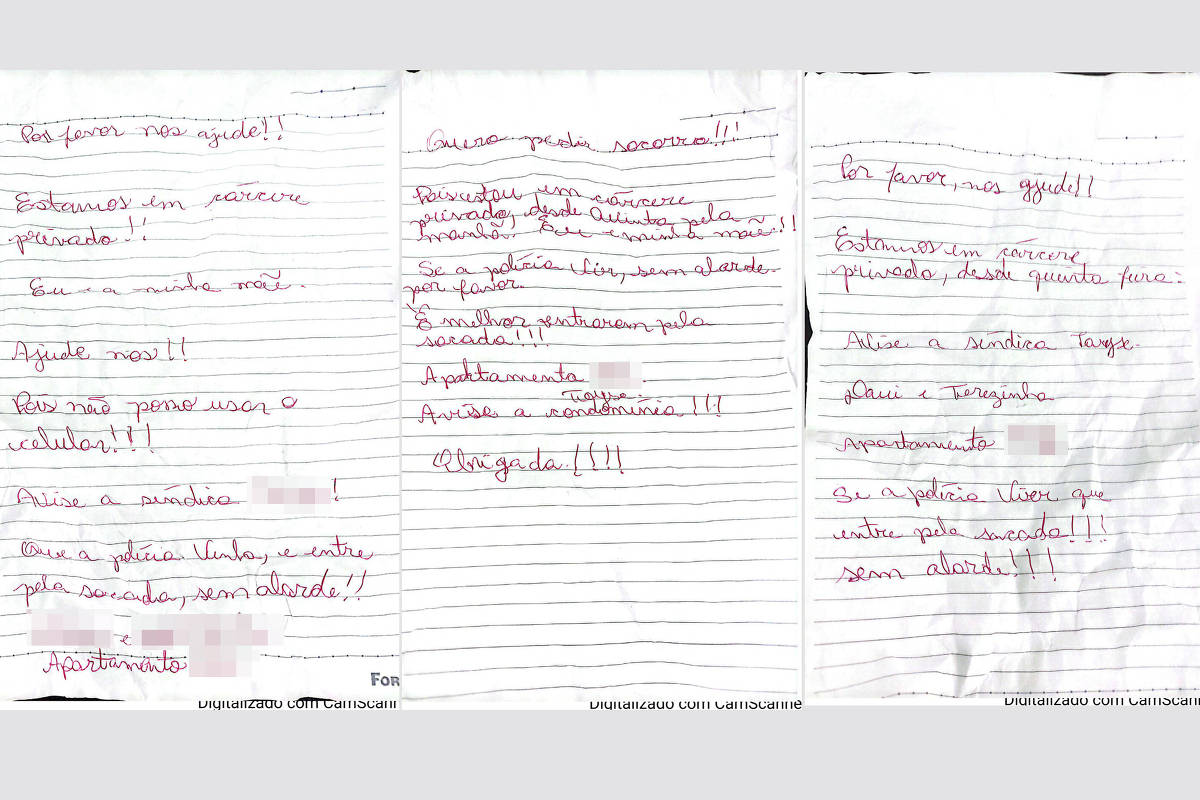 Por favor nos ajude!!
Estamos em cárcere
privado!!
Eu e a minha mãe.
Ajude nos!!
Pois não posso usar o
celular!!!
Avise a síndica !
Que a polícia Venha, e entre
pela sacada, sem alarde!!
e
Apartamento
FOR
Digitalizado com CamScann
Quero pedir socorro!!!
Pois estou em cárcere
privado, desde Quinta pela
manhã. Eu e minha mãe!!
Se a polícia Vir, sem alarde
por favor.
É melhor entrarem pela
sacada!!!
Apartamento .
Tayse.
Avise a condomínia!!!
Obrigada!!!!
Digitalizado com CamScanne
Por favor, nos ajude!!
Estamos em cárcere
privado, desde quinta feira.
Avise a síndica Tayse.
Davi e Terezinha
Apartamento
Se a polícia Vier que
entre pela sacada!!!
sem alarde!!!
Digitalizado com CamScann